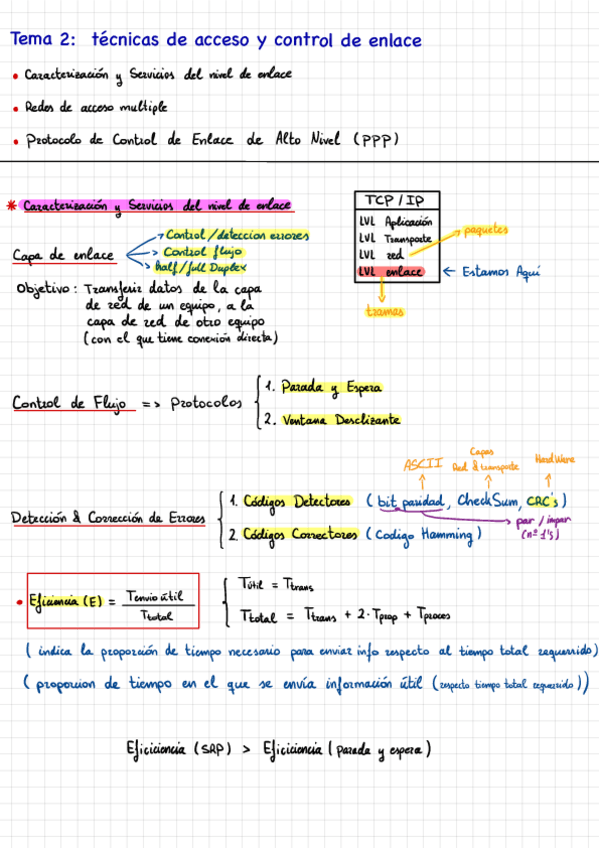 Tema 2: técnicas de acceso y control de enlace
• Caracterización y Servicios del nivel de enlace
• Redes de acceso multiple
• Protocolo de Control de Enlace de Alto Nivel (PPP)
* Caracterización y Servicios del nivel de enlace
Capa de enlace
Control/detección errores
Control flujo
half/full Duplex
Objetivo: Transferir datos de la capa
de red de un equipo, a la
capa de red de otro equipo
(con el que tiene conexión directa)
TCP / IP
LVL Aplicación
LVL Transporte
LVL red
paquetes
LVL enlace
← Estamos Aquí
tramas
Control de Flujo => Protocolos
1. Parada y Espera
2. Ventana Deselizante
Detección & Corrección de Errores
ASCII
Capas
Red & transporte
HardWare
1. Códigos Detectores (bit paridad, CheckSum, CRC's)
par / impar
(nº 1's)
2. Códigos Correctores (Codigo Hamming)
• Eficiencia (E) = Tenvío útil / Ttotal
Tútil = Ttrans
Ttotal = Ttrans + 2·Tprop + Tproces
( indica la proporción de tiempo necesario para enviar info respecto al tiempo total requerido)
( proporcion de tiempo en el que se envía información útil (respecto tiempo total requerido))
Eficiciencia (SRP) > Eficiciencia (parada y espera)